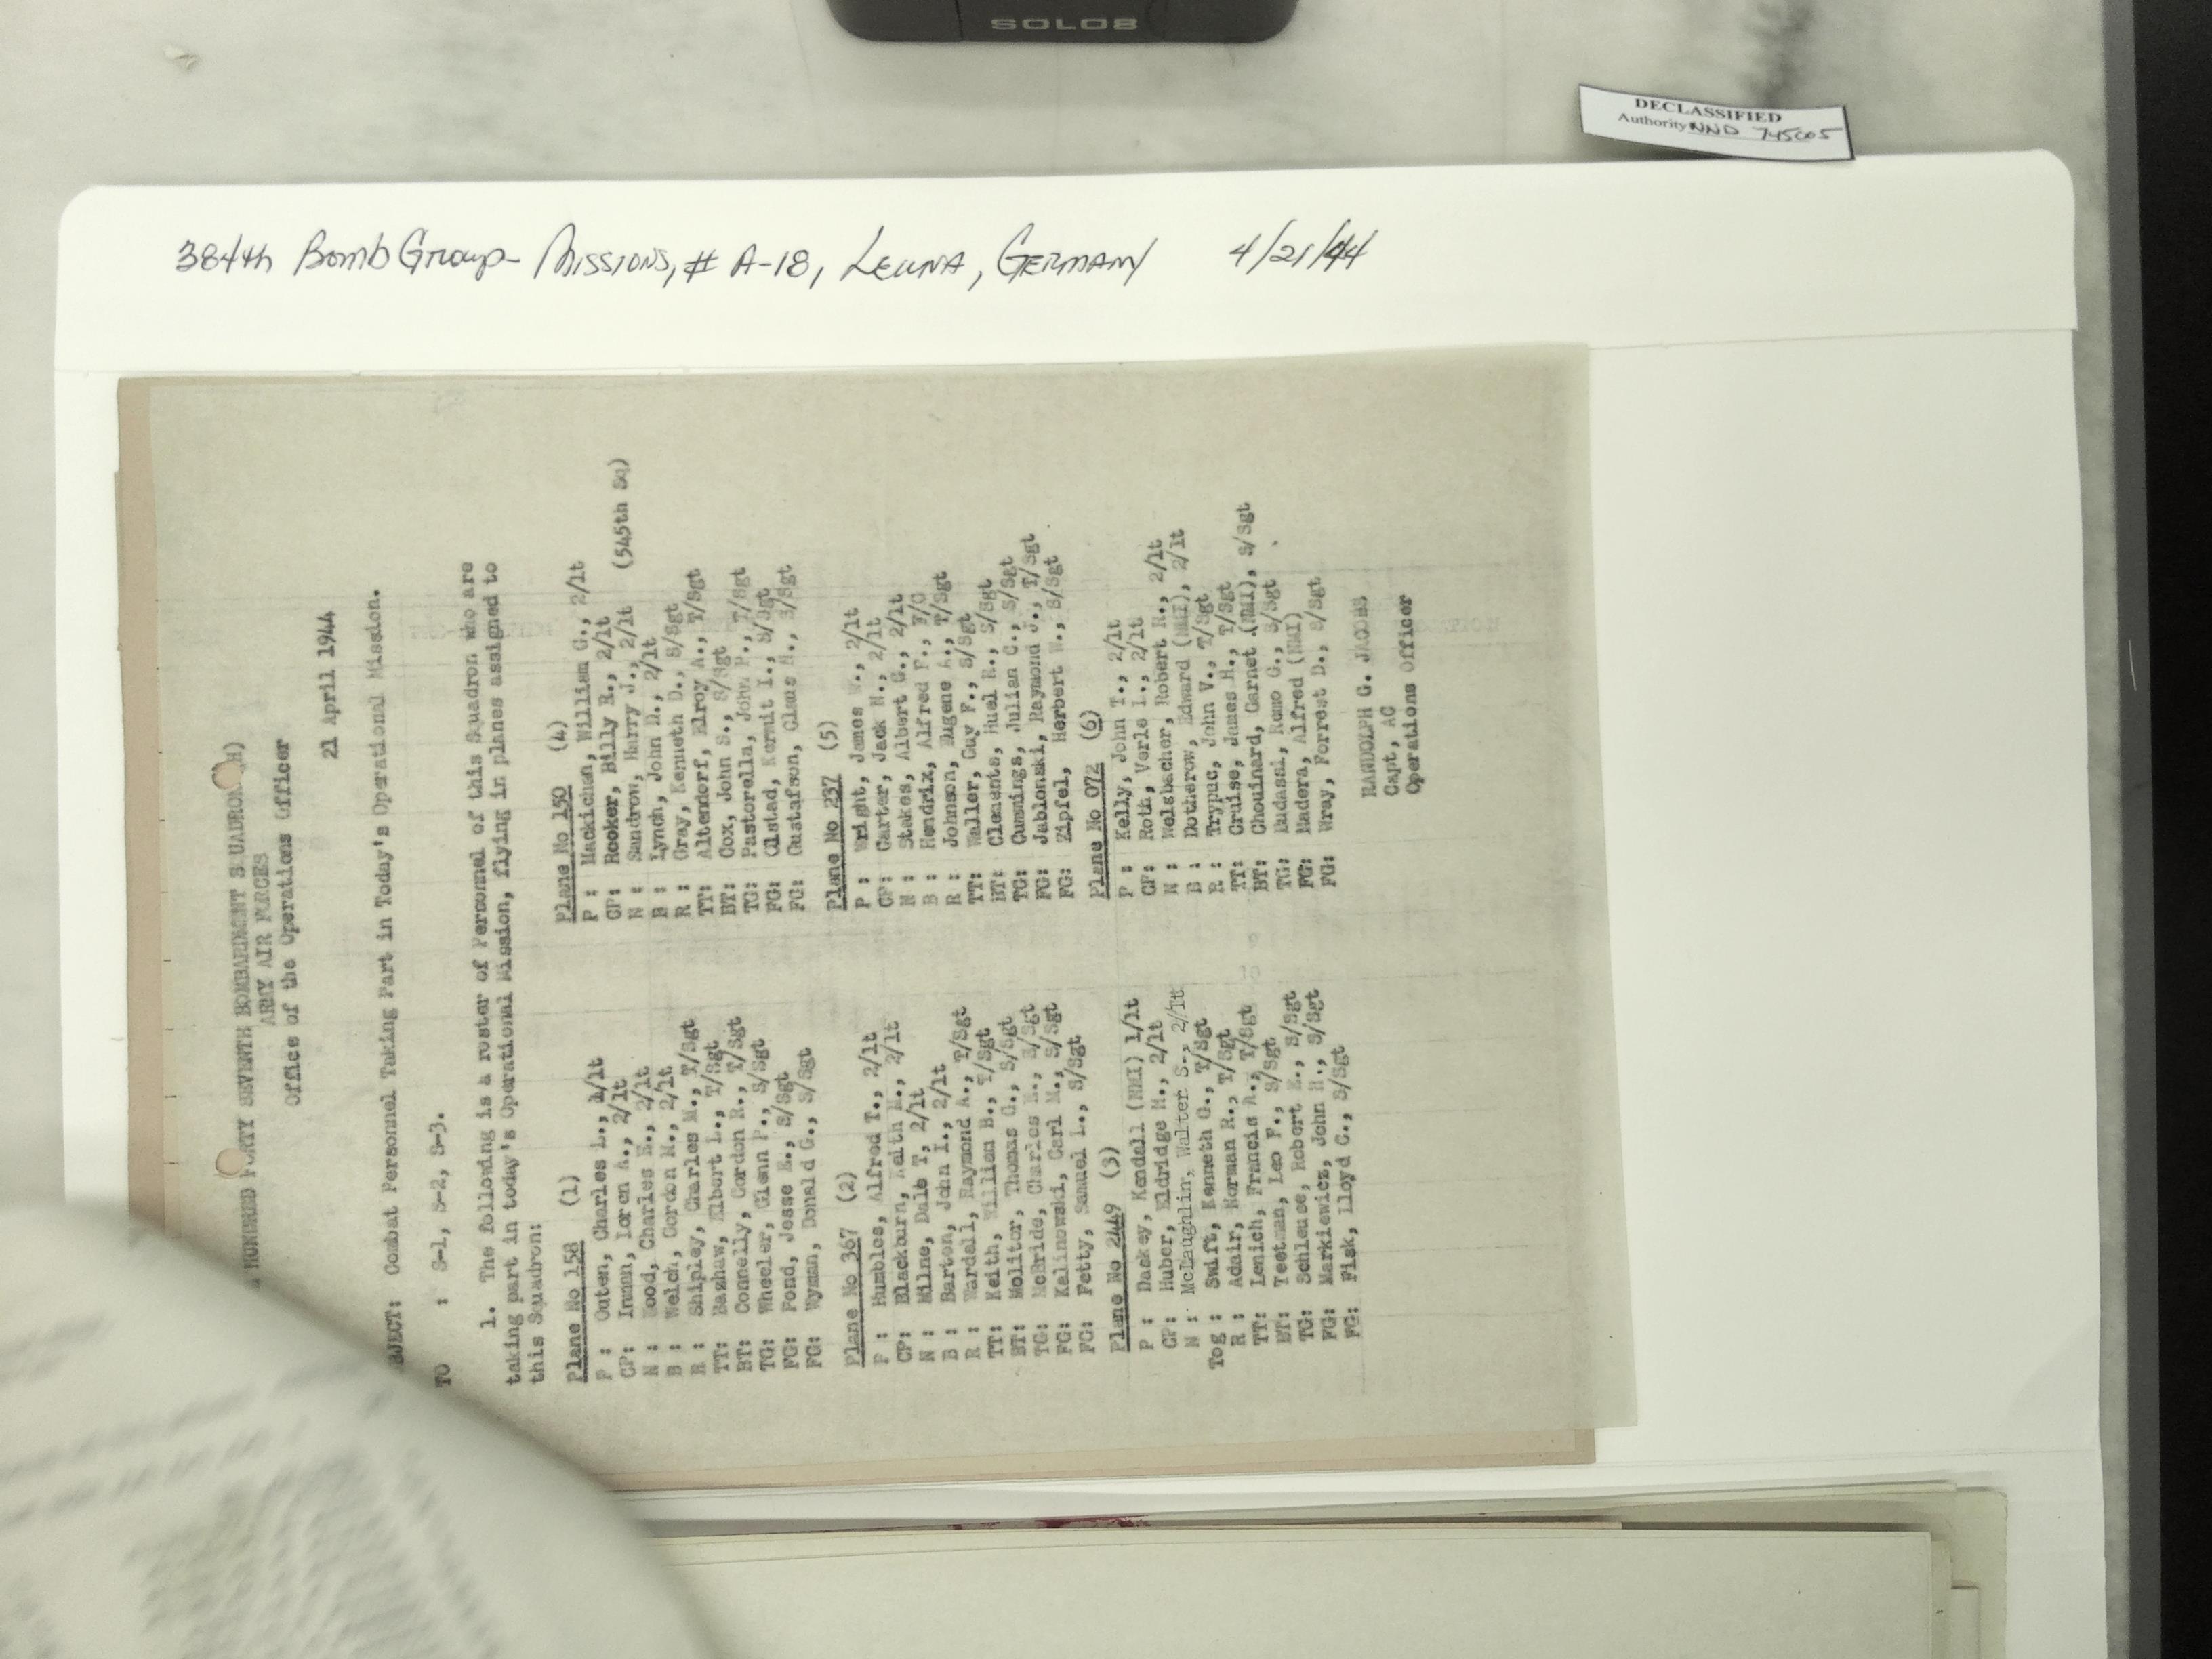 SOLO8
DECLASSIFIED
Authority NND 745005
384th Bomb Group- Missions, # A-18, Leuna, Germany 4/21/44
HUNDRED FORTY SEVENTH BOMBARDMENT SQUADRON (H)
ARMY AIR FORCES
Office of the Operations Officer
21 April 1944
BJECT: Combat Personnel Taking Part in Today's Operational Mission.
TO : S-1, S-2, S-3.
1. The following is a roster of Personnel of this Squadron who are
taking part in today's Operational Mission, flying in planes assigned to
this Squadron:
Plane No 158 (1)
P : Outen, Charles L., 1/lt
CP: Inman, Loren A., 2/lt
N : Wood, Charles E., 2/lt
B : Welch, Gordon M., 2/lt
R : Shipley, Charles M., T/Sgt
TT: Bazhaw, Elbert L., T/Sgt
BT: Connelly, Gordon R., T/Sgt
TG: Wheeler, Glenn P., S/Sgt
FG: Pond, Jesse E., S/Sgt
FG: Wyman, Donald G., S/Sgt
Plane No 367 (2)
P : Humbles, Alfred T., 2/lt
CP: Blackburn, Keith M., 2/lt
N : Milne, Dale T, 2/lt
B : Barton, John I., 2/lt
R : Wardell, Raymond A., T/Sgt
TT: Keith, William B., T/Sgt
BT: Molitor, Thomas G., S/Sgt
TG: McBride, Charles E., S/Sgt
FG: Kalinowski, Carl M., S/Sgt
FG: Fetty, Samuel L., S/Sgt
Plane No 2449 (3)
P : Daskey, Kendall (NMI) 1/lt
CP: Huber, Eldridge M., 2/lt
N : McLaughlin, Walter S., 2/lt
Tog : Swift, Kenneth G., T/Sgt
R : Adair, Norman R., T/Sgt
TT: Lenich, Francis A., T/Sgt
BT: Teetman, Leo F., S/Sgt
TG: Schleuse, Robert E., S/Sgt
FG: Markiewicz, John H., S/Sgt
FG: Fisk, Lloyd C., S/Sgt
Plane No 150 (4)
P : Mackichan, William G., 2/lt
CP: Rooker, Billy R., 2/lt (545th Sq)
N : Sandrow, Harry J., 2/lt
B : Lynch, John D., 2/lt
R : Gray, Kenneth D., S/Sgt
TT: Altendorf, Elroy A., T/Sgt
BT: Cox, John S., S/Sgt
TG: Pastorella, John P., T/Sgt
FG: Olstad, Kermit I., S/Sgt
FG: Gustafson, Claus N., S/Sgt
Plane No 237 (5)
P : Wright, James W., 2/lt
CP: Carter, Jack N., 2/lt
N : Stakes, Albert G., 2/lt
B : Hendrix, Alfred F., F/O
R : Johnson, Eugene A., T/Sgt
TT: Waller, Guy F., S/Sgt
BT: Clements, Huel R., S/Sgt
TG: Cummings, Julian C., S/Sgt
FG: Jablonski, Raymond J., T/Sgt
FG: Zipfel, Herbert W., S/Sgt
Plane No 072 (6)
P : Kelly, John T., 2/lt
CP: Roth, Verle L., 2/lt
N : Welsbacher, Robert R., 2/lt
B : Dotherow, Edward (NMI), 2/lt
R : Trypuc, John V., T/Sgt
TT: Cruise, James H., T/Sgt
BT: Chouinard, Garnet (NMI), S/Sgt
TG: Dudasal, Romo G., S/Sgt
FG: Madera, Alfred (NMI)
FG: Wray, Forrest D., S/Sgt
RANDOLPH G. JACOBS
Capt, AC
Operations Officer